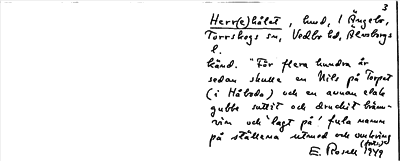 3
Herr(e)hålet, hmd, i Ängebr,
Torrskogs sn, Vedbo hd, Älvsborgs
l.
känd. "För flera hundra år
sedan skulle en Nils på Torpet
(i Håbode) och en annan elak
gubbe suttit och druckit bränn-
vin och 'lagt på' fula namn
på ställena utmed och omkring
E. Rosell 1949